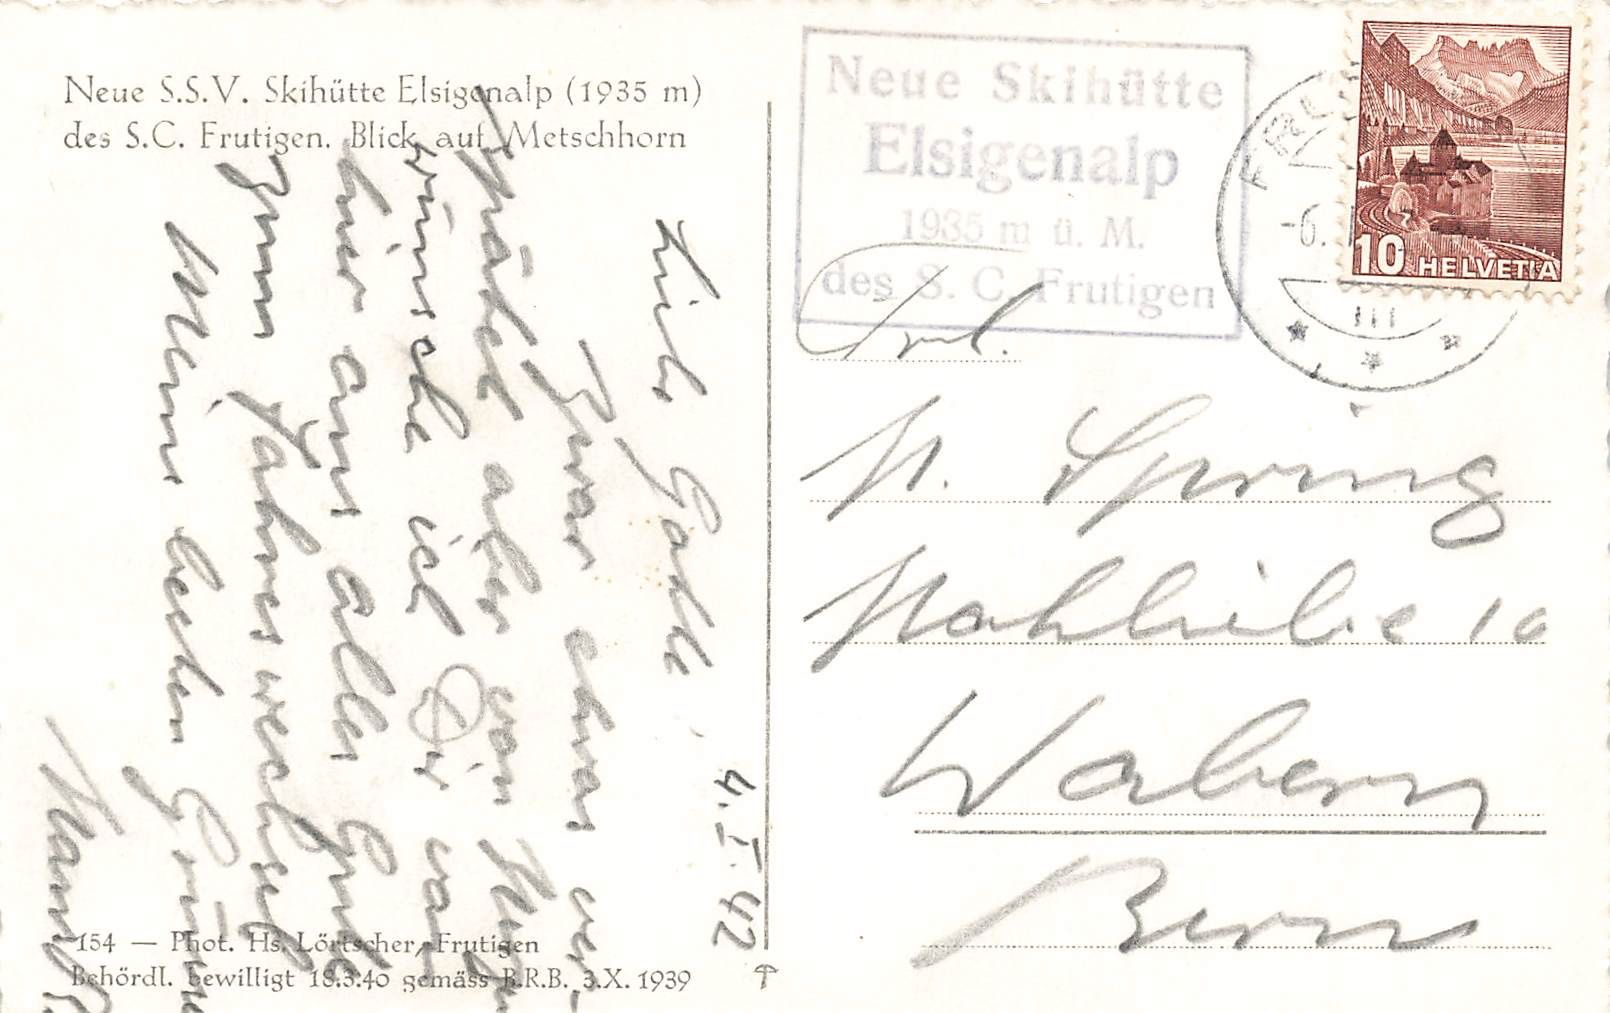 Neue S.S.V. Skihütte Elsigenalp (1935 m)
des S.C. Frutigen. Blick auf Metschhorn
4. I. 42
Liebe
Zwar etwas ver-
spätet aber von
wünsche ich Dir von
hier aus alles Gute
zum Jahreswechsel
Mein besten Grüsse
154 — Phot. Hs. Lörtscher, Frutigen
Behördl. bewilligt 18.3.40 gemäss B.R.B. 3.X. 1939
Neue Skihütte
Elsigenalp
1935 m ü. M.
des S. C. Frutigen
-6.
10 HELVETIA
Frl.
H. Spring
10
Wabern
Bern